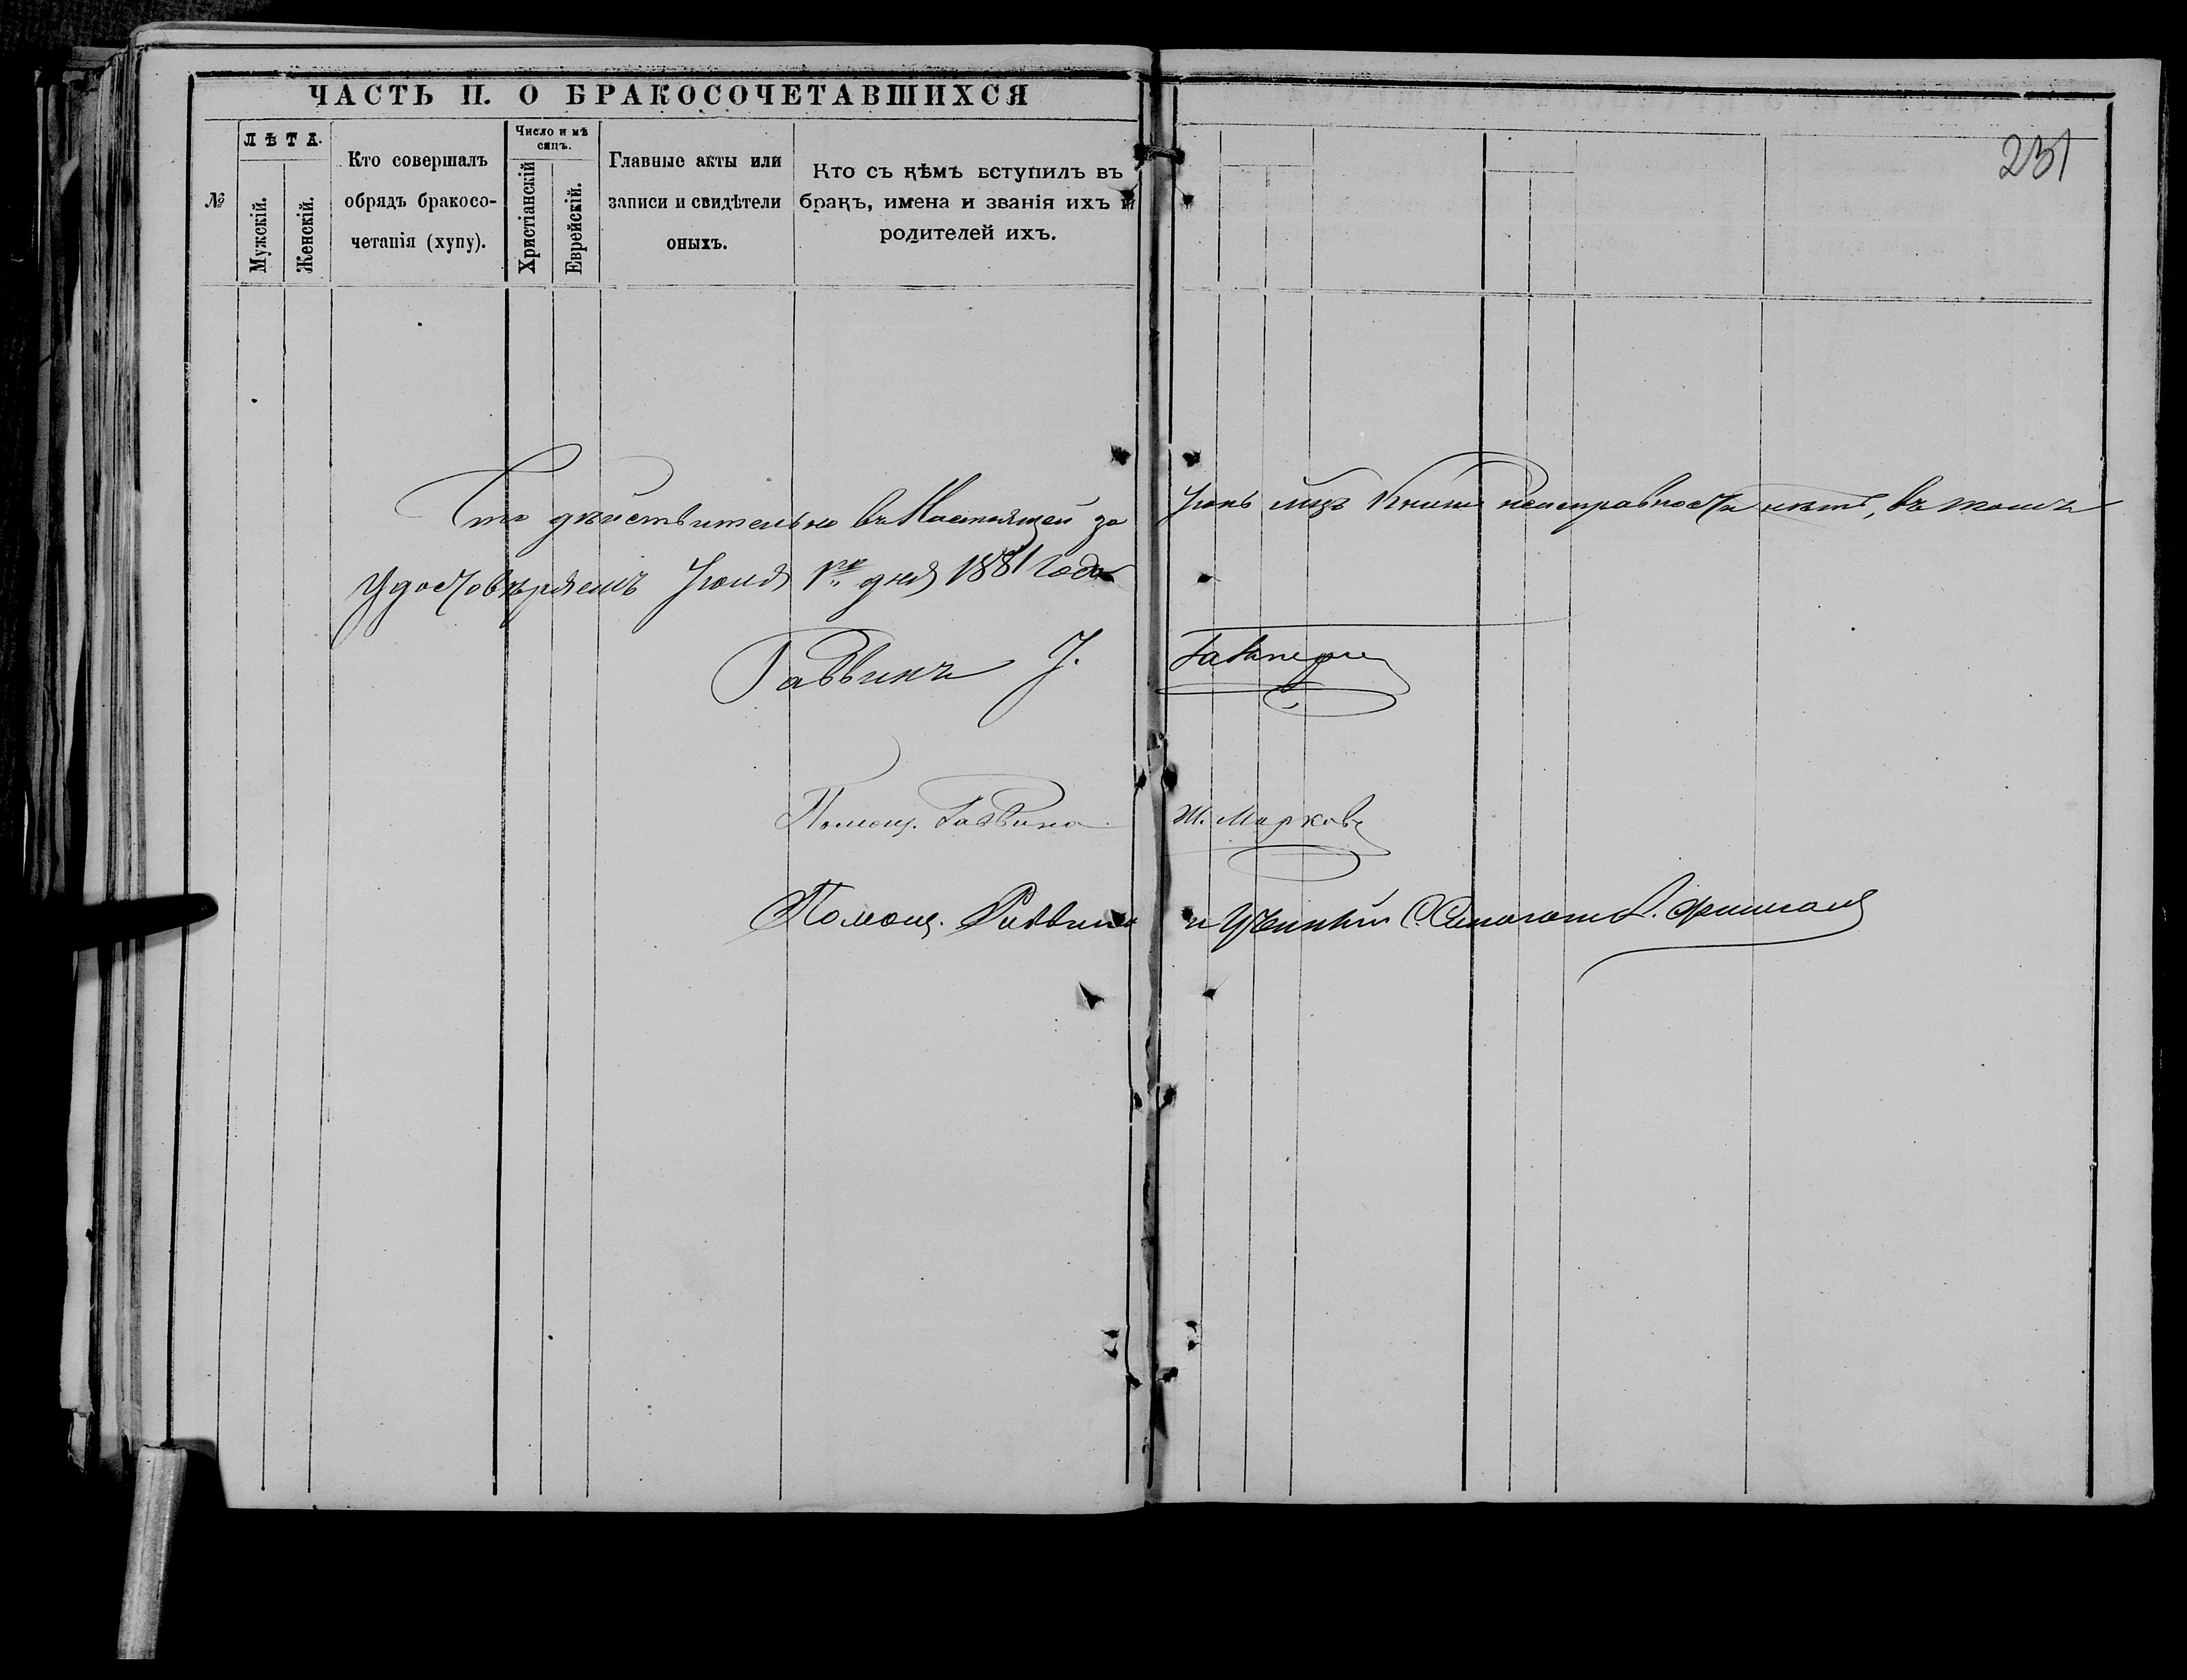 ЧАСТЬ II. О БРАКОСОЧЕТАВШИХСЯ
231
№
ЛѢТА.
Мужскій.
Женскій.
Кто совершалъ
обрядъ бракосо-
четанія (хупу).
Число и мѣ
сяцъ.
Христіанскій
Еврейскій.
Главные акты или
записи и свидѣтели
оныхъ.
Кто съ кѣмъ вступилъ въ
бракъ, имена и званія ихъ и
родителей ихъ.
Что дѣйствительно въ Настоящей за Іюнь мцъ Книги неисправности нѣтъ, въ томъ
Удостовѣряемъ Іюня 1го дня 1881 Года
Раввинъ І. Гальперн
Помощ. Раввина М. Марковъ
Помощ. Раввина и Ученый